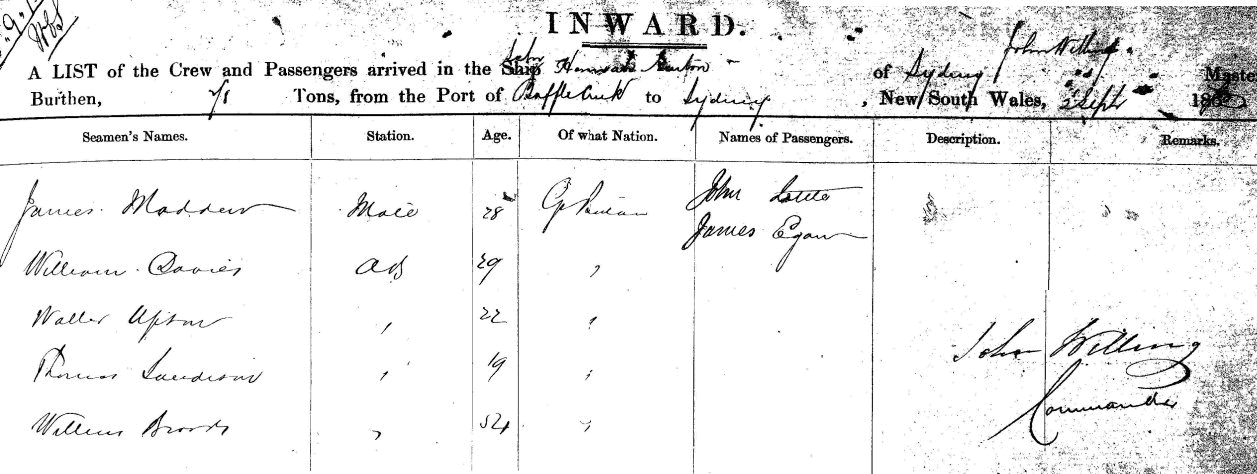 INWARD.
John Willing
A LIST of the Crew and Passengers arrived in the Ship Hannah of Sydney Maste
Burthen, 71 Tons, from the Port of Baffle Creek to Sydney, New South Wales, 2 Sept 186
Seamen's Names. Station. Age. Of what Nation. Names of Passengers. Description. Remarks.
James Madden Mate 28 Gt Britain John Little
James Egan
William Davies AB 29 "
Walter Upton " 22 "
John Willing
Thomas " 19 "
Commander
William Brooks " 54 "